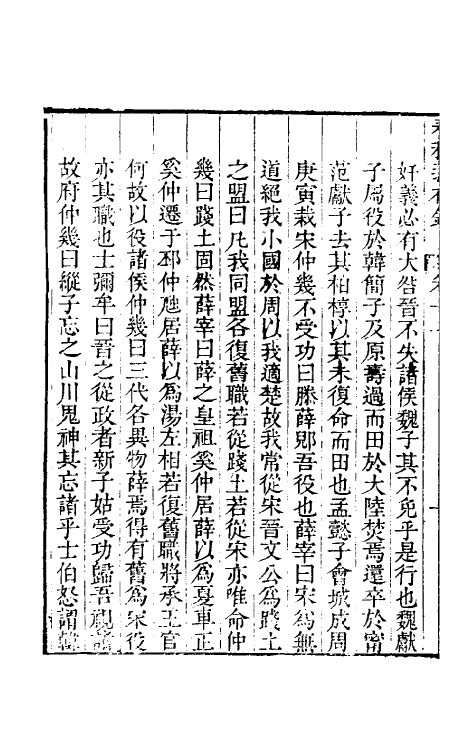 奸義必有大咎晉不失諸侯魏子其不免乎是行也魏獻
子屬役於韓簡子及原壽過而田於大陸焚焉還卒於甯
范獻子去其柏椁以其未復命而田也孟懿子會城成周
庚寅栽宋仲幾不受功曰滕薛郳吾役也薛宰曰宋為無
道絕我小國於周以我適楚故我常從宋晉文公為踐土
之盟曰凡我同盟各復舊職若從踐土若從宋亦唯命仲
幾曰踐土固然薛宰曰薛之皇祖奚仲居薛以為夏車正
奚仲遷于邳仲虺居薛以為湯左相若復舊職將承王官
何故以役諸侯仲幾曰三代各異物薛焉得有舊為宋役
亦其職也士彌牟曰晉之從政者新子姑受功歸吾視諸
故府仲幾曰縱子忘之山川鬼神其忘諸乎士伯怒謂韓